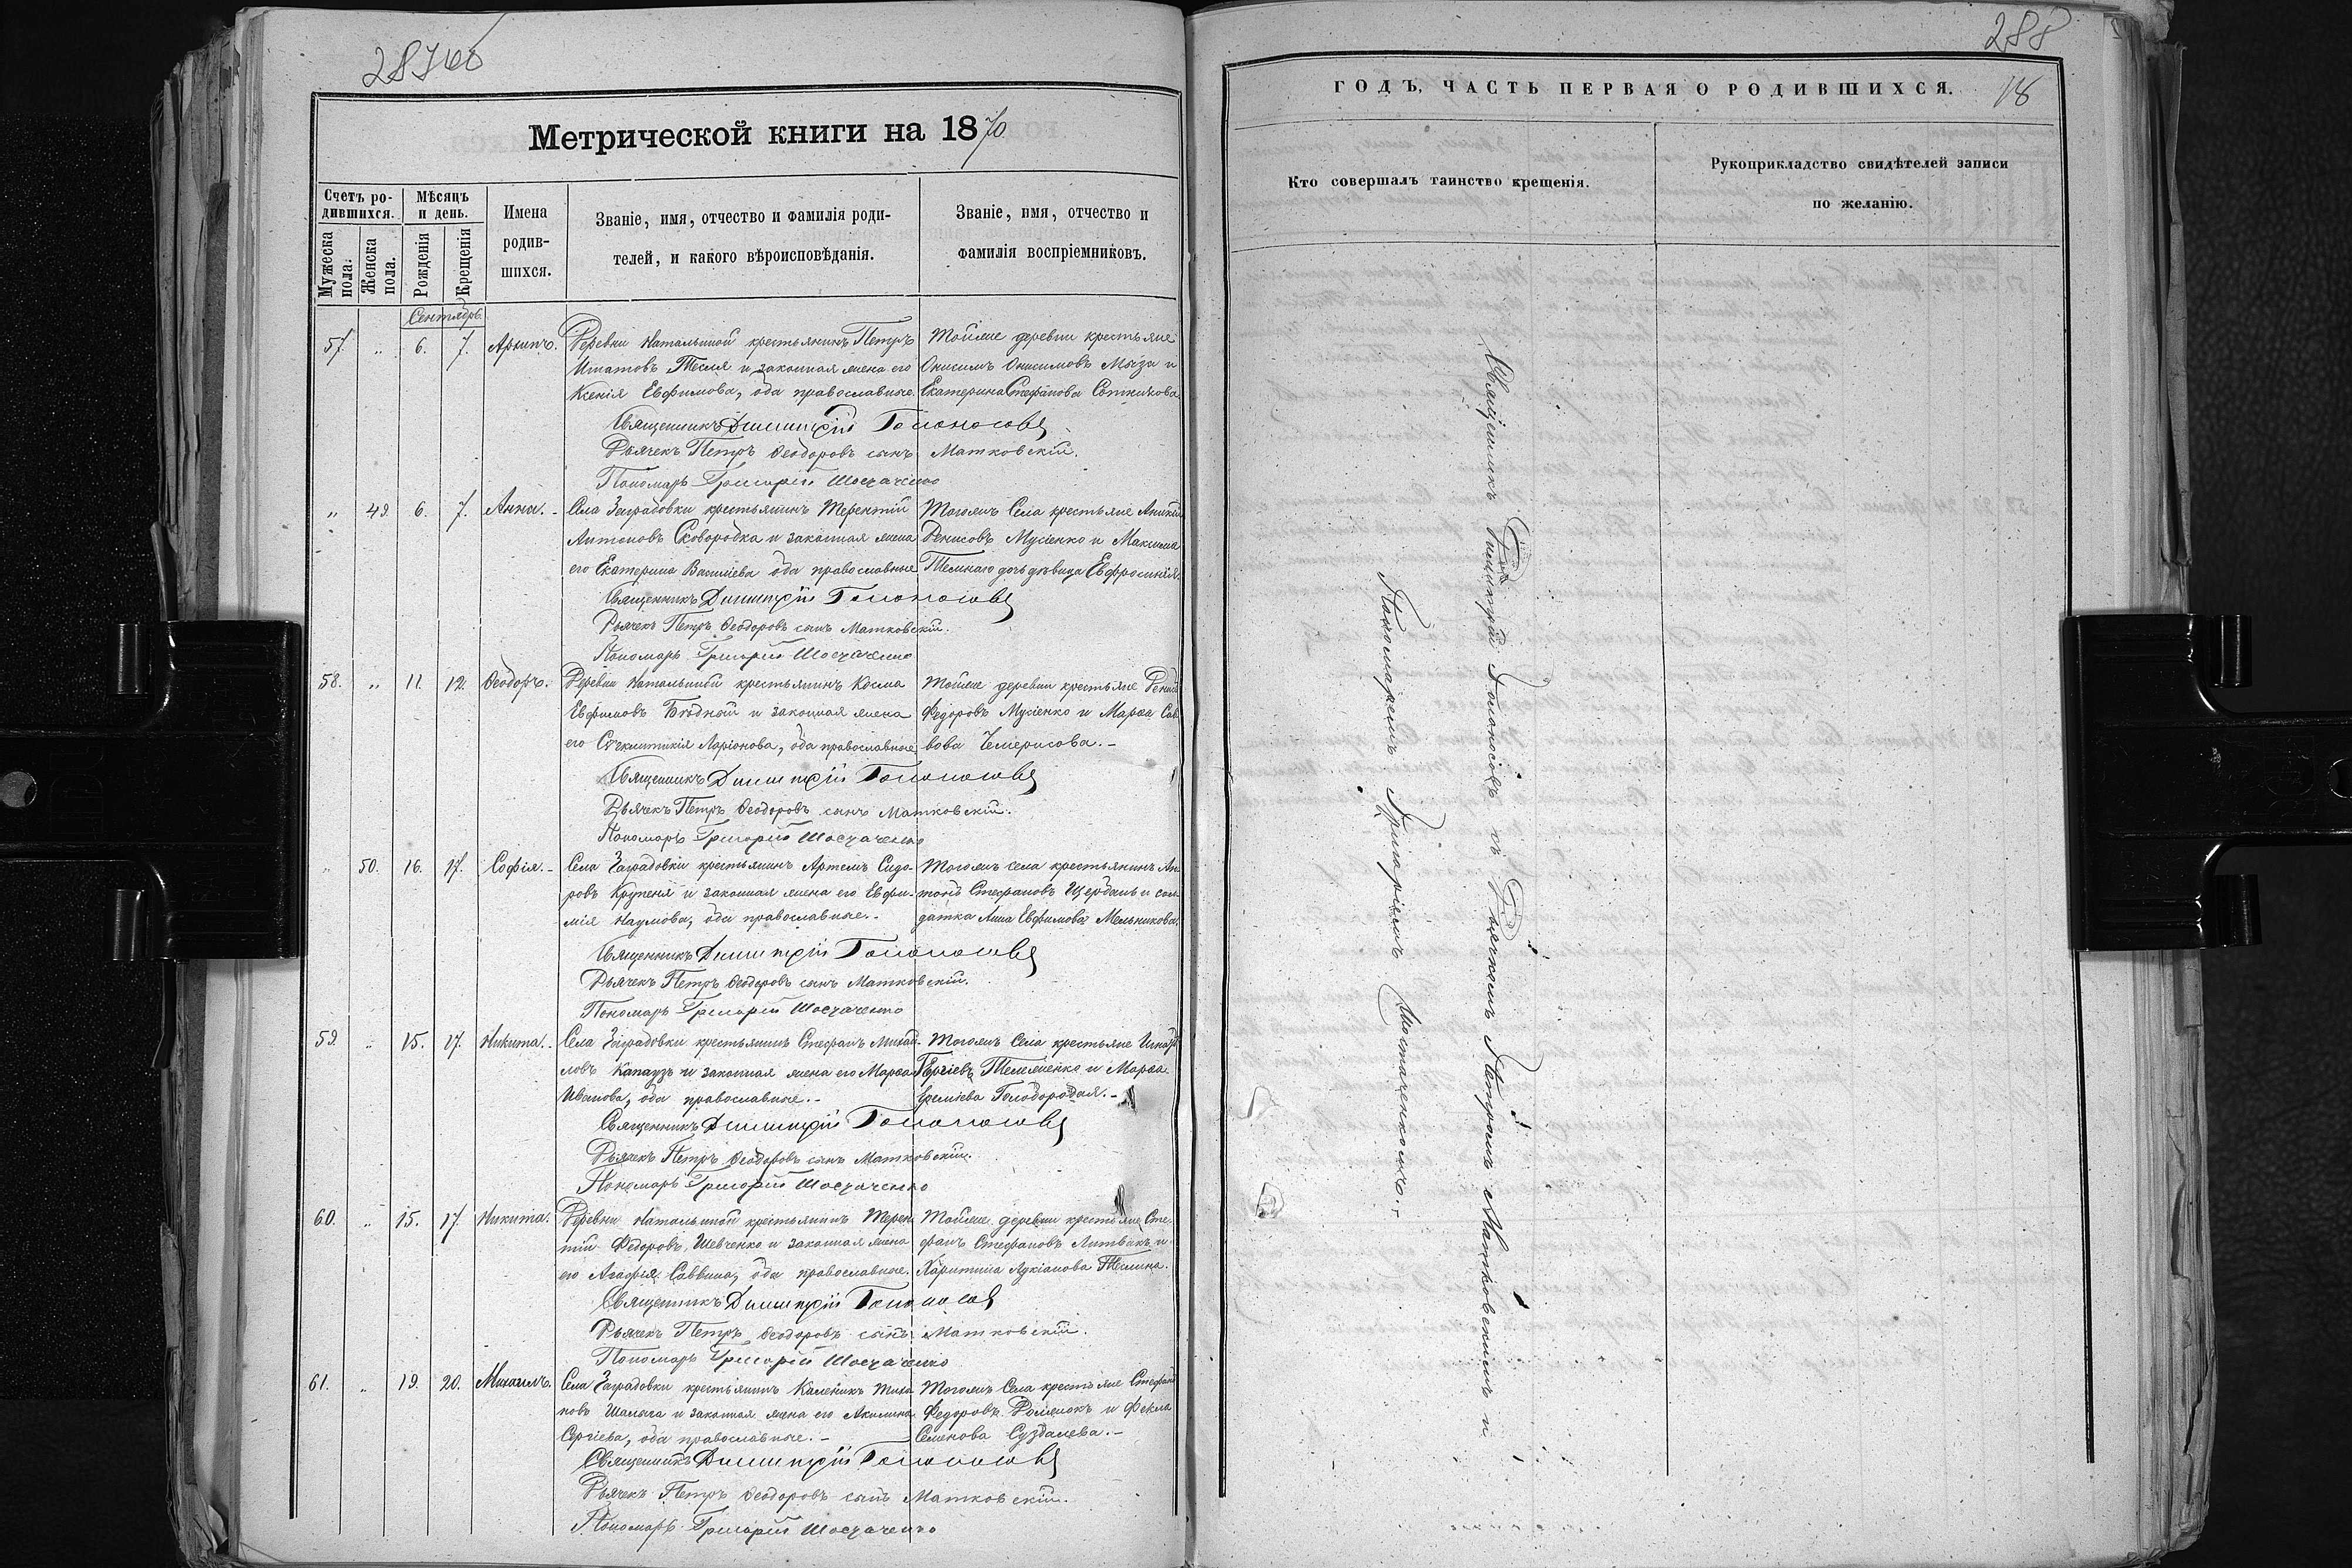 287об
Метрической книги на 1870
Счетъ ро-
дившихся.
Мѣсяцъ
и день.
Мужеска
пола.
Женска
пола.
Рожденія
Крещенія
Имена
родив-
шихся.
Званіе, имя, отчество и фамилія роди-
телей, и какого вѣроисповѣданія.
Званіе, имя, отчество и
фамилія воспріемниковъ.
Сентябрь
57. „ 6. 7. Архипъ. Деревни Натальиной крестьянинъ Петръ
Тойже деревни крестьяне
Тесля и законная жена его
Онисимъ Онисимовъ Мыза и
Ксенія Евфимова, оба православные.
Екатерина Стефанова Сотникова
Священникъ Димитрій Голоносовъ
Дьячекъ Петръ Феодоровъ сынъ Матковскій.
Пономарь Григорій Шостаченко
„ 49. 6. 7. Анна. Села Заградовки крестьянинъ Терентій
Тогожъ Села крестьяне
Антоновъ Сковородка и законная жена
Денисовъ Мусіенко и Максима
его Екатерина Василіева оба православные
Темнаго дочь дѣвица Евфросинія.
Священникъ Димитрій Голоносовъ
Дьячекъ Петръ Феодоровъ сынъ Матковскій.
Пономарь Григорій Шостаченко
58. „ 11. 12. Феодоръ. Деревни Натальиной крестьянинъ Косма
Тойже деревни крестьяне
Евфимовъ Бѣдной и законная жена
Федоровъ Мусіенко и Марѳа Сав
его Ларіонова, оба православные
вова Чемерисова.-
Священникъ Димитрій Голоносовъ
Дьячекъ Петръ Феодоровъ сынъ Матковскій.
Пономарь Григорій Шостаченко
„ 50. 16. 17. Софія.- Села Заградовки крестьянинъ Артемъ Сидо-
Тогожъ села крестьянинъ Ан
ровъ Крупеня и законная жена его Евфи-
тонъ Стефановъ Щербань и сол-
мія Наумова, оба православные.-
датка Анна Евфимова Мельникова.
Священникъ Димитрій Голоносовъ
Дьячекъ Петръ Феодоровъ сынъ Матковскій.
Пономарь Григорій Шостаченко
59. „ 15. 17. Никита.- Села Заградовки крестьянинъ Стефанъ Михай-
Тогожъ Села крестьяне
ловъ Капаузъ и законная жена его Марѳа
и Марѳа
Иванова, оба православные.-
Голобородая.-
Священникъ Димитрій Голоносовъ
Дьячекъ Петръ Феодоровъ сынъ Матковскій.
Пономарь Григорій Шостаченко
60. „ 15. 17. Никита. Деревни Натальиной крестьянинъ Терен
Тойже деревни крестьяне Сте-
тій Федоровъ Шевченко и законная жена
фанъ Стефановъ Литвакъ и
его Агафія Саввина, оба православные.
Харитина Лукіанова Теслина.
Священникъ Димитрій Голоносовъ
Дьячекъ Петръ Феодоровъ сынъ Матковскій.
Пономарь Григорій Шостаченко
61. „ 19. 20. Михаилъ. Села Заградовки крестьянинъ Каленикъ Тихо
Тогожъ Села крестьяне Стефанъ
новъ и законная жена его Акилина
Федоровъ и Фекла
Сергіева, оба православные.-
Семенова Суздалева.-
Священникъ Димитрій Голоносовъ
Дьячекъ Петръ Феодоровъ сынъ Матковскій.
Пономарь Григорій Шостаченко
288
18
ГОДЪ, ЧАСТЬ ПЕРВАЯ О РОДИВШИХСЯ.
Кто совершалъ таинство крещенія.
Рукоприкладство свидѣтелей записи
по желанію.
Священникъ Димитрій Голоносовъ съ Дьячкомъ Петромъ Матковскимъ и
Пономаремъ Григоріемъ Шостаченкомъ.